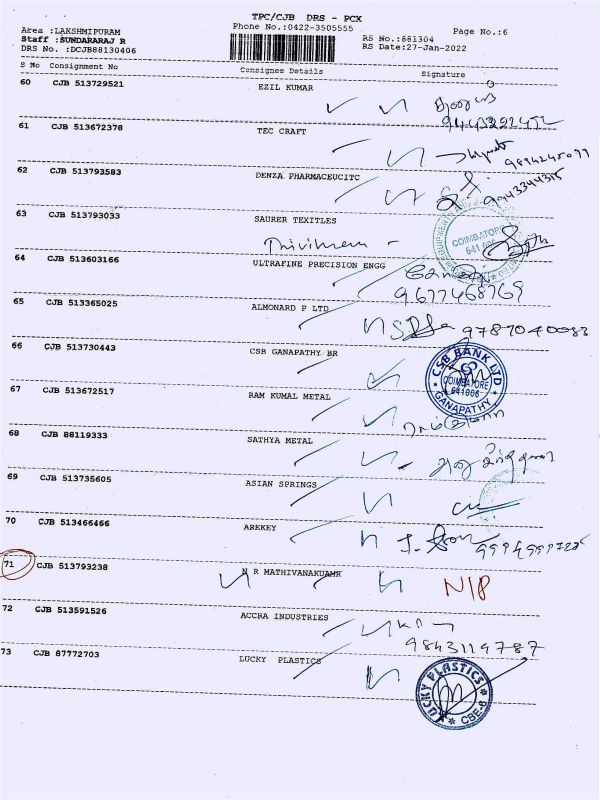 TPC/CJB DRS - PCX
Phone No.:0422-3505555
Page No.:6
Area :LAKSHMIPURAM
Staff :SUNDARARAJ R
DRS No. :DCJB88130406
RS No.:881304
RS Date:27-Jan-2022
S No Consignment No Consignee Details Signature
60 CJB 513729521 EZIL KUMAR
61 CJB 513672378 TEC CRAFT
9894245077
62 CJB 513793583 DENZA PHARMACEUCITC
9943344315
63 CJB 513793033 SAURER TEXITLES
COIMBATORE
641 006
64 CJB 513603166 ULTRAFINE PRECISION ENGG
9677468769
65 CJB 513365025 ALMONARD P LTD
9787040083
66 CJB 513730443 CSB GANAPATHY BR
CSB BANK LTD
COIMBATORE
641006
GANAPATHY
67 CJB 513672517 RAM KUMAL METAL
68 CJB 88119333 SATHYA METAL
69 CJB 513735605 ASIAN SPRINGS
70 CJB 513466466 AREKEY
71 CJB 513793238 N R MATHIVANAKUAMR
N/P
72 CJB 513591526 ACCRA INDUSTRIES
9843119787
73 CJB 87772703 LUCKY PLASTICS
LUCKY PLASTICS
CBE-6